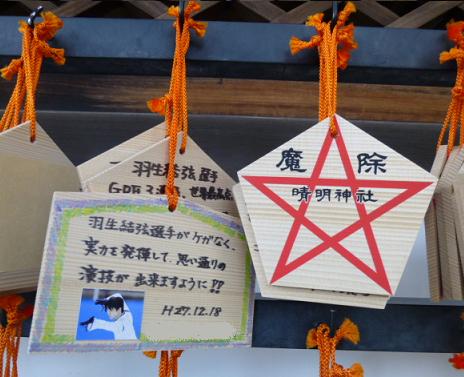 羽生結弦選手
GPF3連覇 世界最高
羽生結弦選手がケガなく、
実力を発揮して、思い通りの
演技が 出来ますように!!
H27.12.18
魔 除
晴明神社